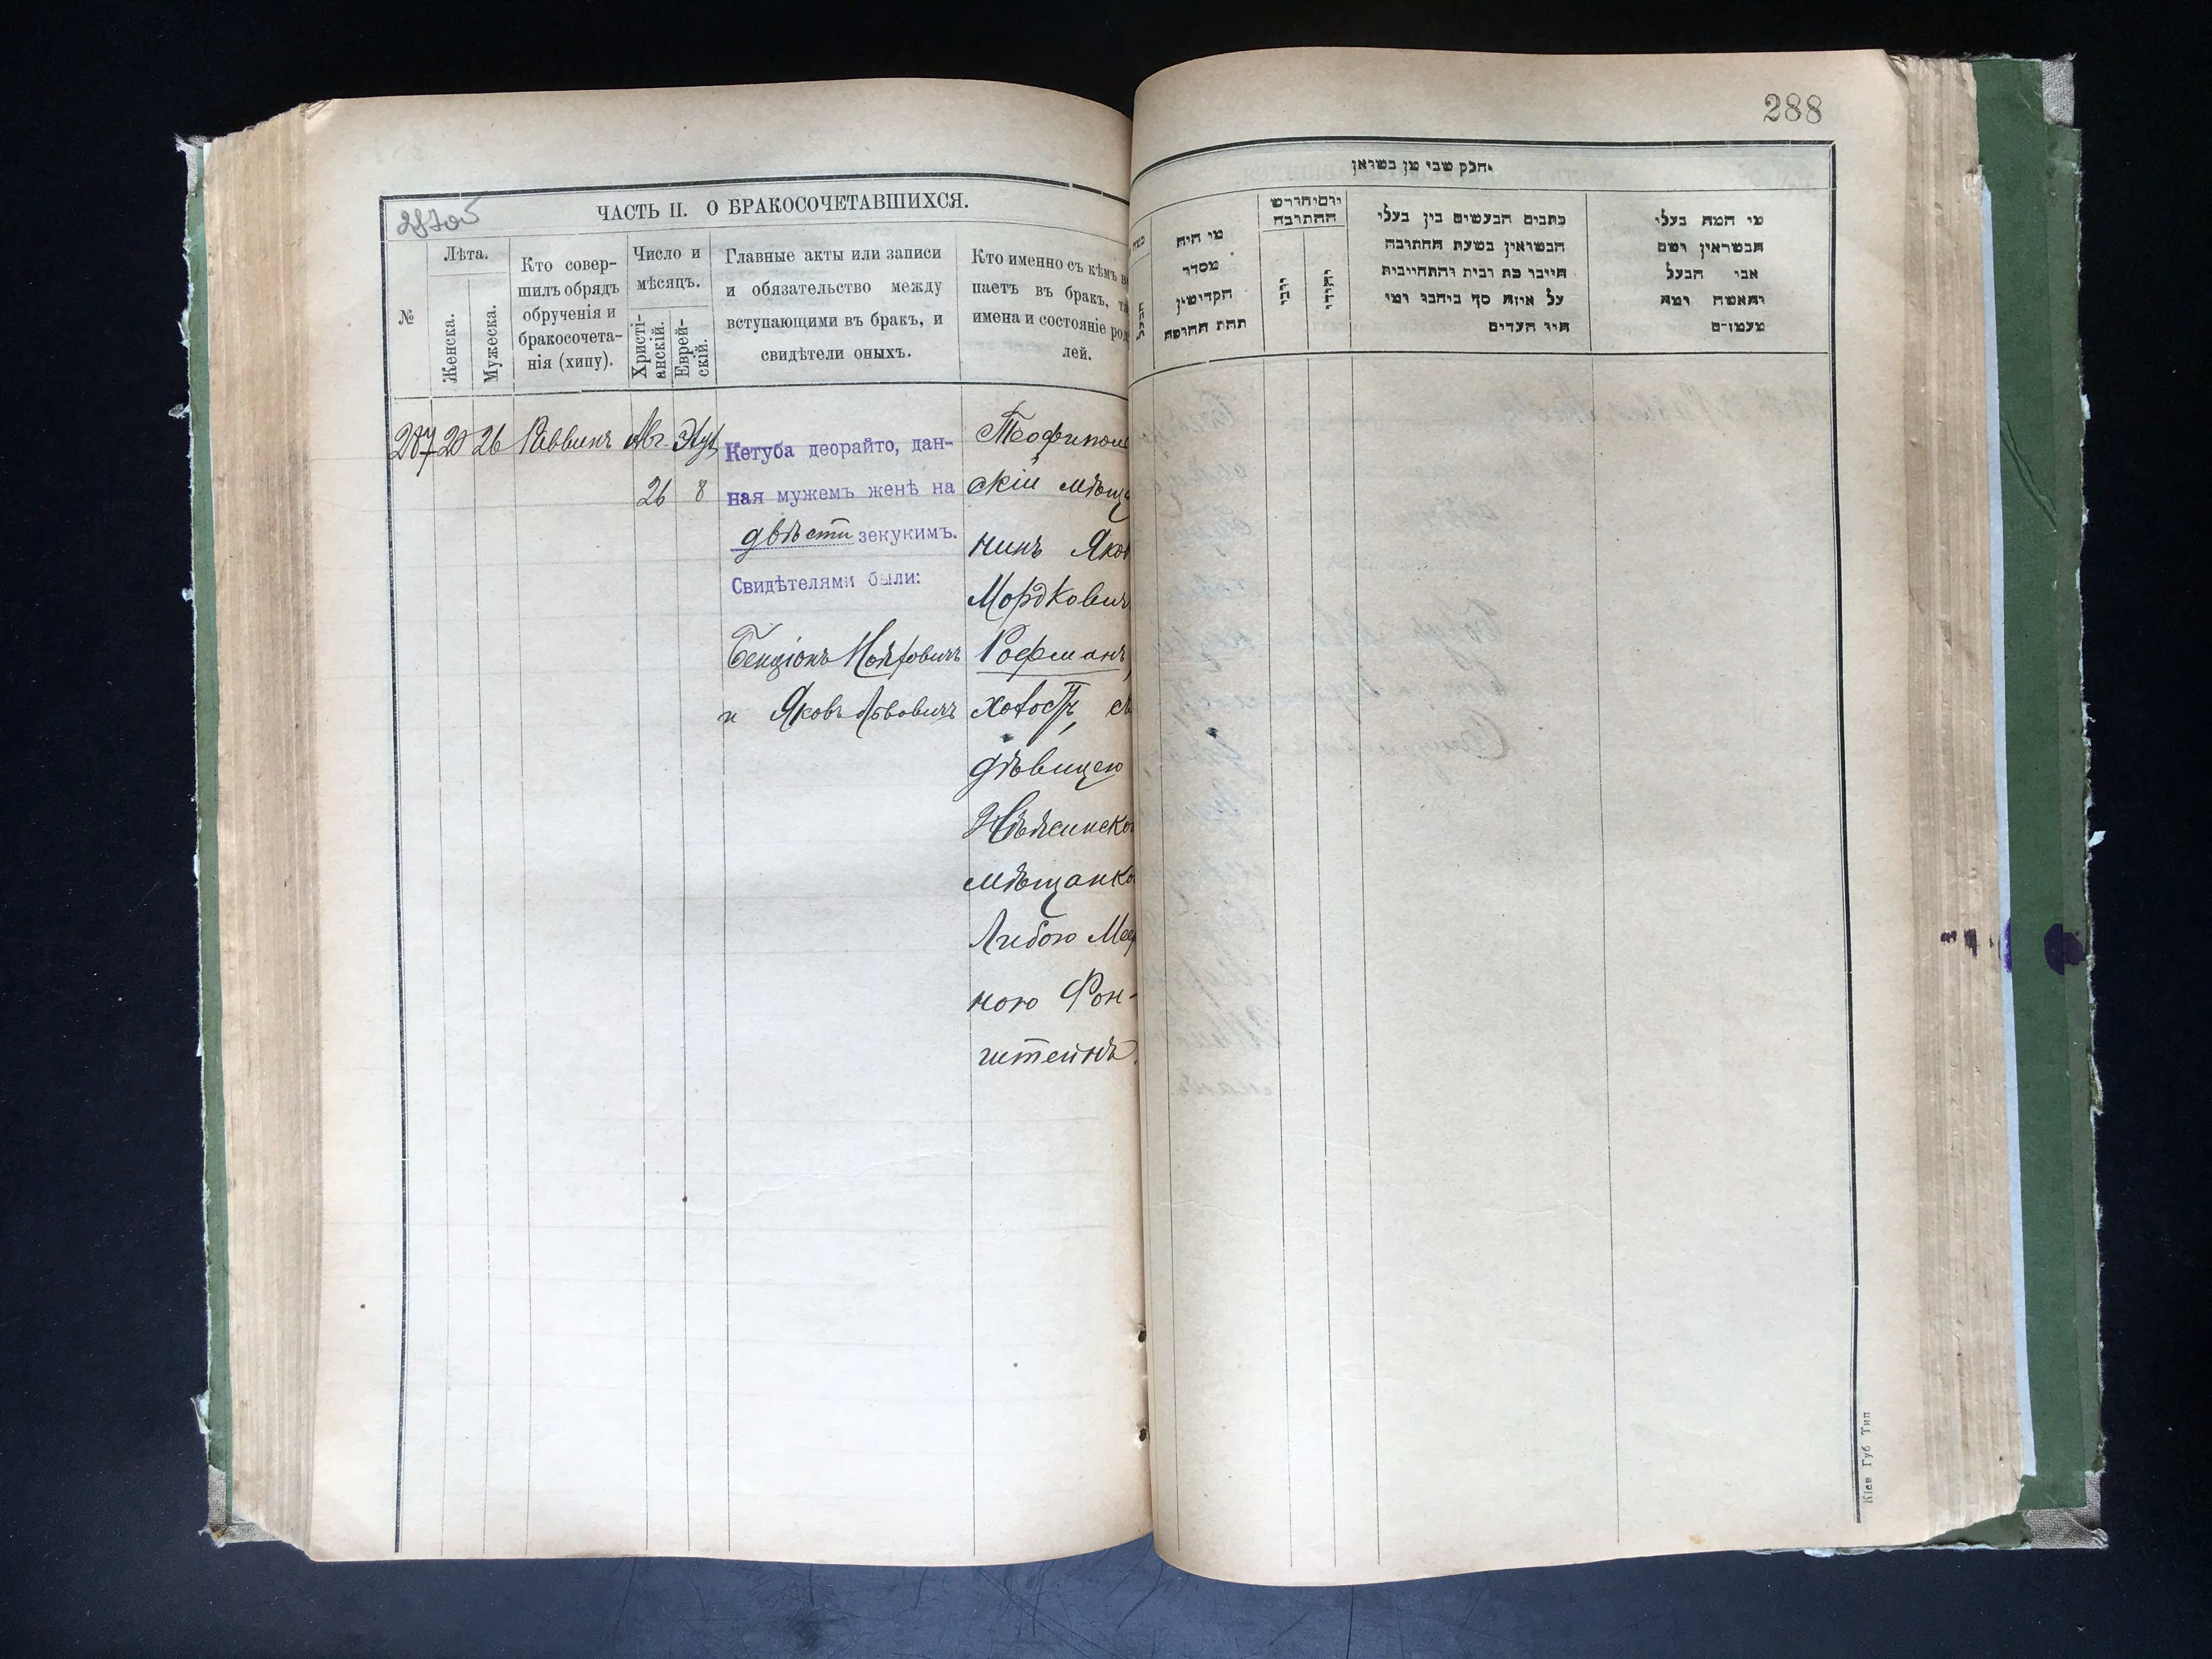 288
287об
ЧАСТЬ II. О БРАКОСОЧЕТАВШИХСЯ.
№
Лѣта.
Женска.
Мужеска.
Кто совер-
шилъ обрядъ
обрученія и
бракосочета-
нія (хипу).
Число и
мѣсяцъ.
Христі-
анскій.
Еврей-
скій.
Главные акты или записи
и обязательство между
вступающими въ бракъ, и
свидѣтели оныхъ.
Кто именно съ кѣмъ в
паетъ въ бракъ, та
имена и состояніе род
лей.
287 20 26 Раввинъ Авг. Элул
26 8
Кетуба деорайто, дан-
ная мужемъ женѣ на
двѣсти зекукимъ.
Свидѣтелями были:
Бенціонъ
и Яковъ Львовичъ
Теофиполь
скій мѣща
нинъ Яков
Мордковичъ
Рофманъ,
холостъ, съ
дѣвицею
Нѣжинско
мѣщанко
Либою Меер
ною Фон-
штейнъ.
חלק שני מן בשואן
מי היה
מסדר
הקדושין
תחת החופה
יום וחודש
החתובה
יוני
יהודי
כתבים הנעשים בין בעלי
הנשואין בשעת החתונה
חייבו כת
על איזה סך
היו העדים
מי המה בעלי
הנשואין ושם
אבי הבעל
והאשה ומה
מעמדם
Кіев Губ Тип